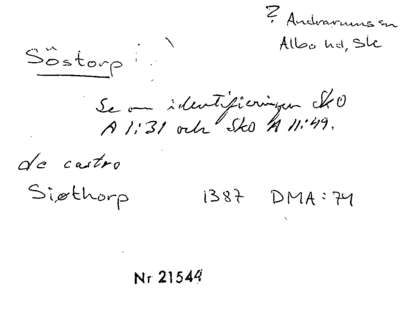 ? Andrarums sn
Albo hd, Sk
Söstorp
Se om identifieringen SkO
A 1:31 och SkO A 11:49.
de castro
Siøthorp 1387 DMA: 74
Nr 21544